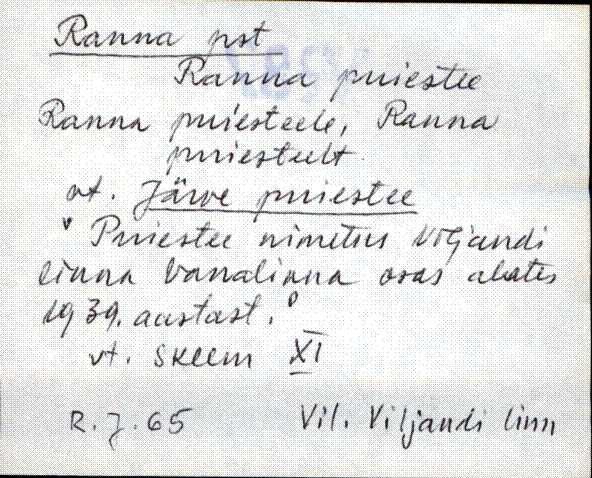 Ranna pst
Ranna puiestee
Ranna puiesteele, Ranna
puiesteelt
vt. Järve puiestee
" Puiestee nimetus Viljandi
linna Vanalinna osas alates
1939. aastast. "
vt. skeem XI
R. J. 65 Vil. Viljandi linn